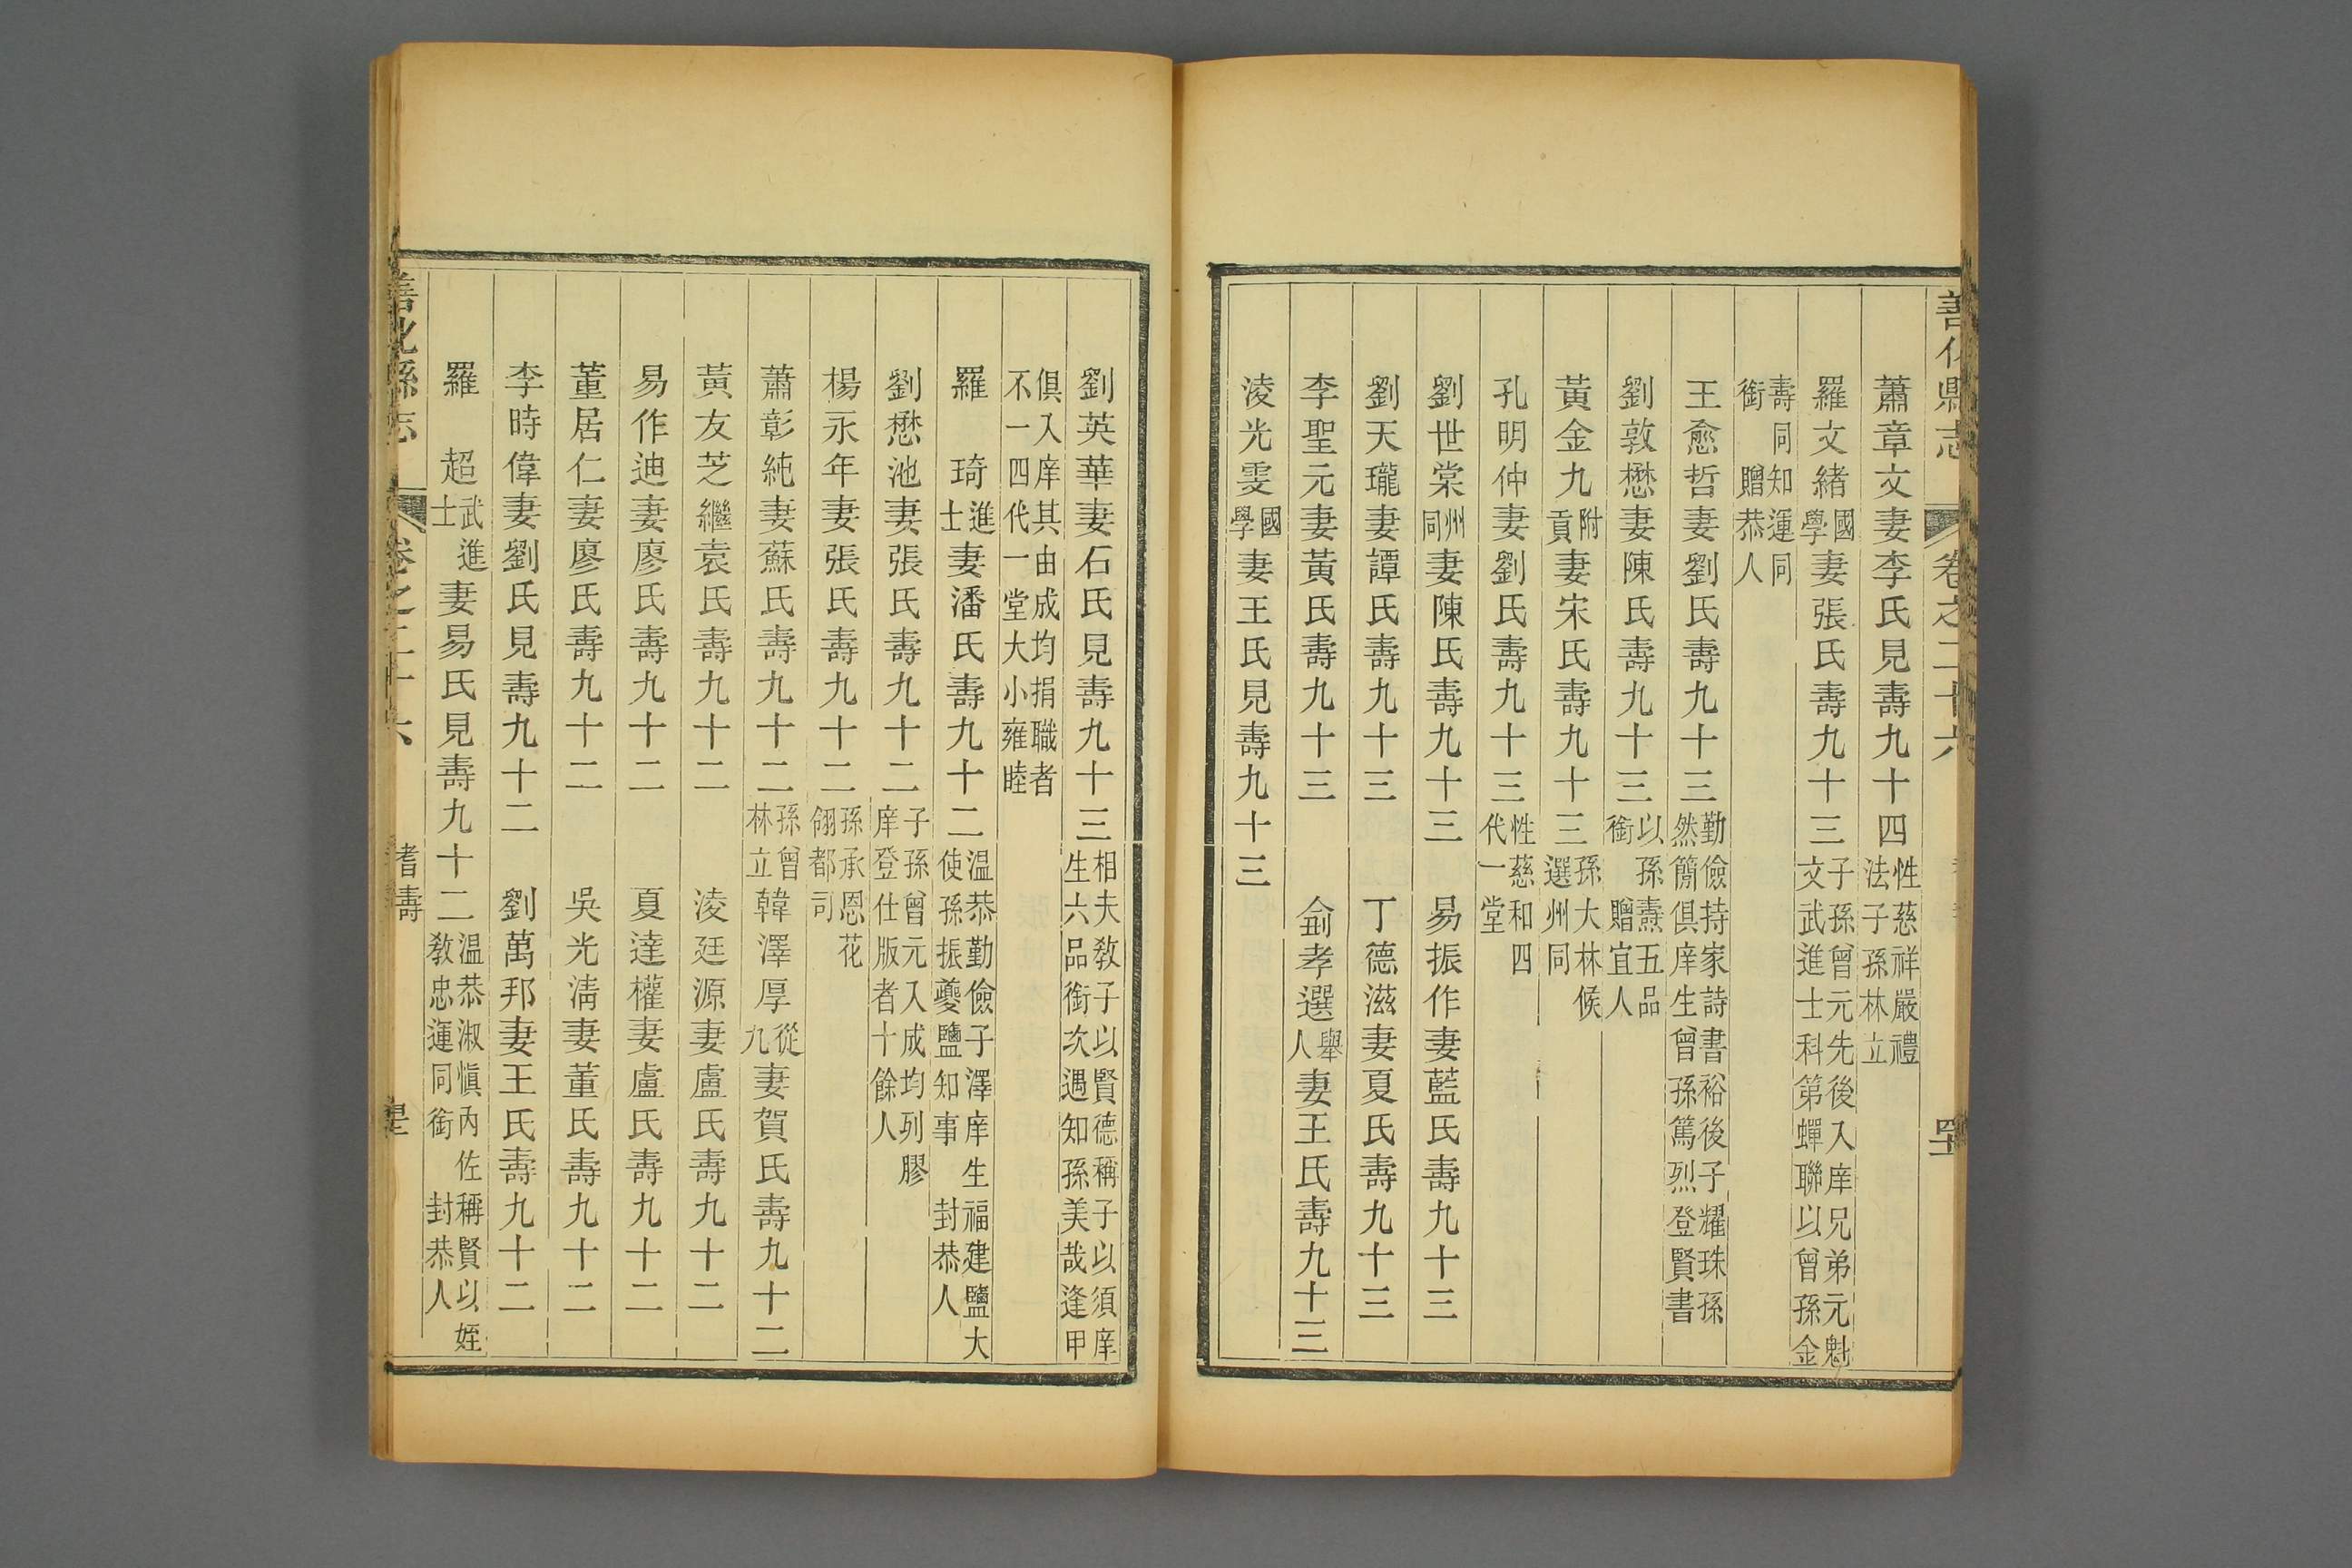 善化縣志 卷之二十六
蕭章文妻李氏見壽九十四 性慈祥嚴禮法子孫林立
羅文緒 國學 妻張氏壽九十三 子孫曾元先後入庠兄弟元魁文武進士科第蟬聯以曾孫金
壽同知運同銜 贈恭人
王愈哲妻劉氏壽九十三 勤儉持家詩書裕後子耀珠孫然簡俱庠生曾孫篤烈登賢書
劉敦懋妻陳氏壽九十三 以孫燾五品銜 贈宜人
黃金九 附貢 妻宋氏壽九十三 孫大林候選州同
孔明仲妻劉氏壽九十三 性慈和四代一堂
劉世棠 州同 妻陳氏壽九十三 易振作妻藍氏壽九十三
劉天瓏妻譚氏壽九十三 丁德滋妻夏氏壽九十三
李聖元妻黃氏壽九十三 俞孝選 舉人 妻王氏壽九十三
淩光雯 國學 妻王氏見壽九十三
劉英華妻石氏見壽九十三 相夫教子以賢德稱子以須庠生六品銜次遇知孫美哉逢甲
俱入庠其由成均捐職者不一四代一堂大小雍睦
羅 琦 進士 妻潘氏壽九十二 温恭勤儉子澤庠生福建鹽大使孫振夔鹽知事 封恭人
劉懋池妻張氏壽九十二 子孫曾元入成均列膠庠登仕版者十餘人
楊永年妻張氏壽九十二 孫承恩花翎都司
蕭彰純妻蘇氏壽九十二 孫曾林立 韓澤厚 從九 妻賀氏壽九十二
黃友芝繼袁氏壽九十二 淩廷源妻盧氏壽九十二
易作迪妻廖氏壽九十二 夏達權妻盧氏壽九十二
董居仁妻廖氏壽九十二 吳光清妻董氏壽九十二
李時偉妻劉氏見壽九十二 劉萬邦妻王氏壽九十二
羅 超 武進士 妻易氏見壽九十二 温恭淑慎內佐稱賢以姪教忠運同銜 封恭人
善化縣志 卷之二十六 耆壽